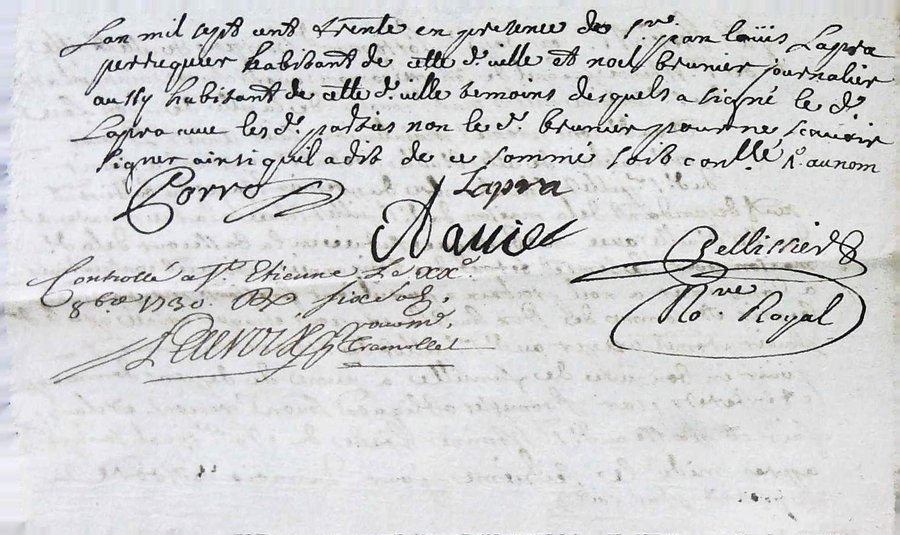 Lan mil sept cent trente en presence de sr. jean louis Lapra
perruquier habitant de cette d. ville et noel brunier journalier
aussy habitant de cette d. ville temoins desquels a signé le d.
Lapra avec les d. parties non le d. brunier pour ne scavoir
signer ainsi quil a dit de ce sommé soit conllé
Porro Lapra
Pellissier
Nore Royal
Controllé a St. Etienne Le XXe.
8bre 1730. six sols